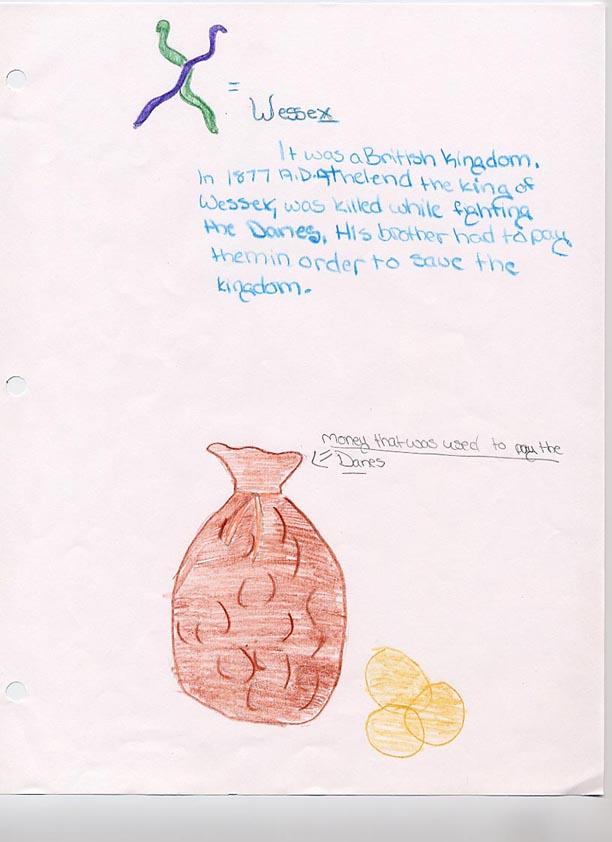 X =
Wessex
It was a British kingdom.
In 1877 A.D. Athelend the king of
Wessex, was killed while fighting
the Danes. His brother had to pay
them in order to save the
kingdom.
money that was used to pay the
Danes